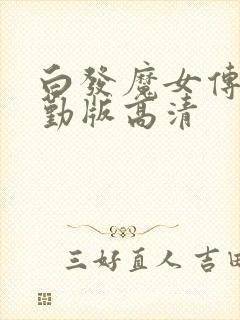 白發魔女傳
勤版高清
三好直人 吉田